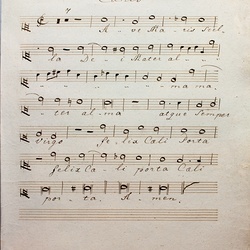 A - ve Ma - ris Stel -
la De - i Mater al -
ma ma
ter al ma atque Semper
Virgo fe - lix Cæli Porta
felix Cæ - li porta Cæli
por - ta. A - men.